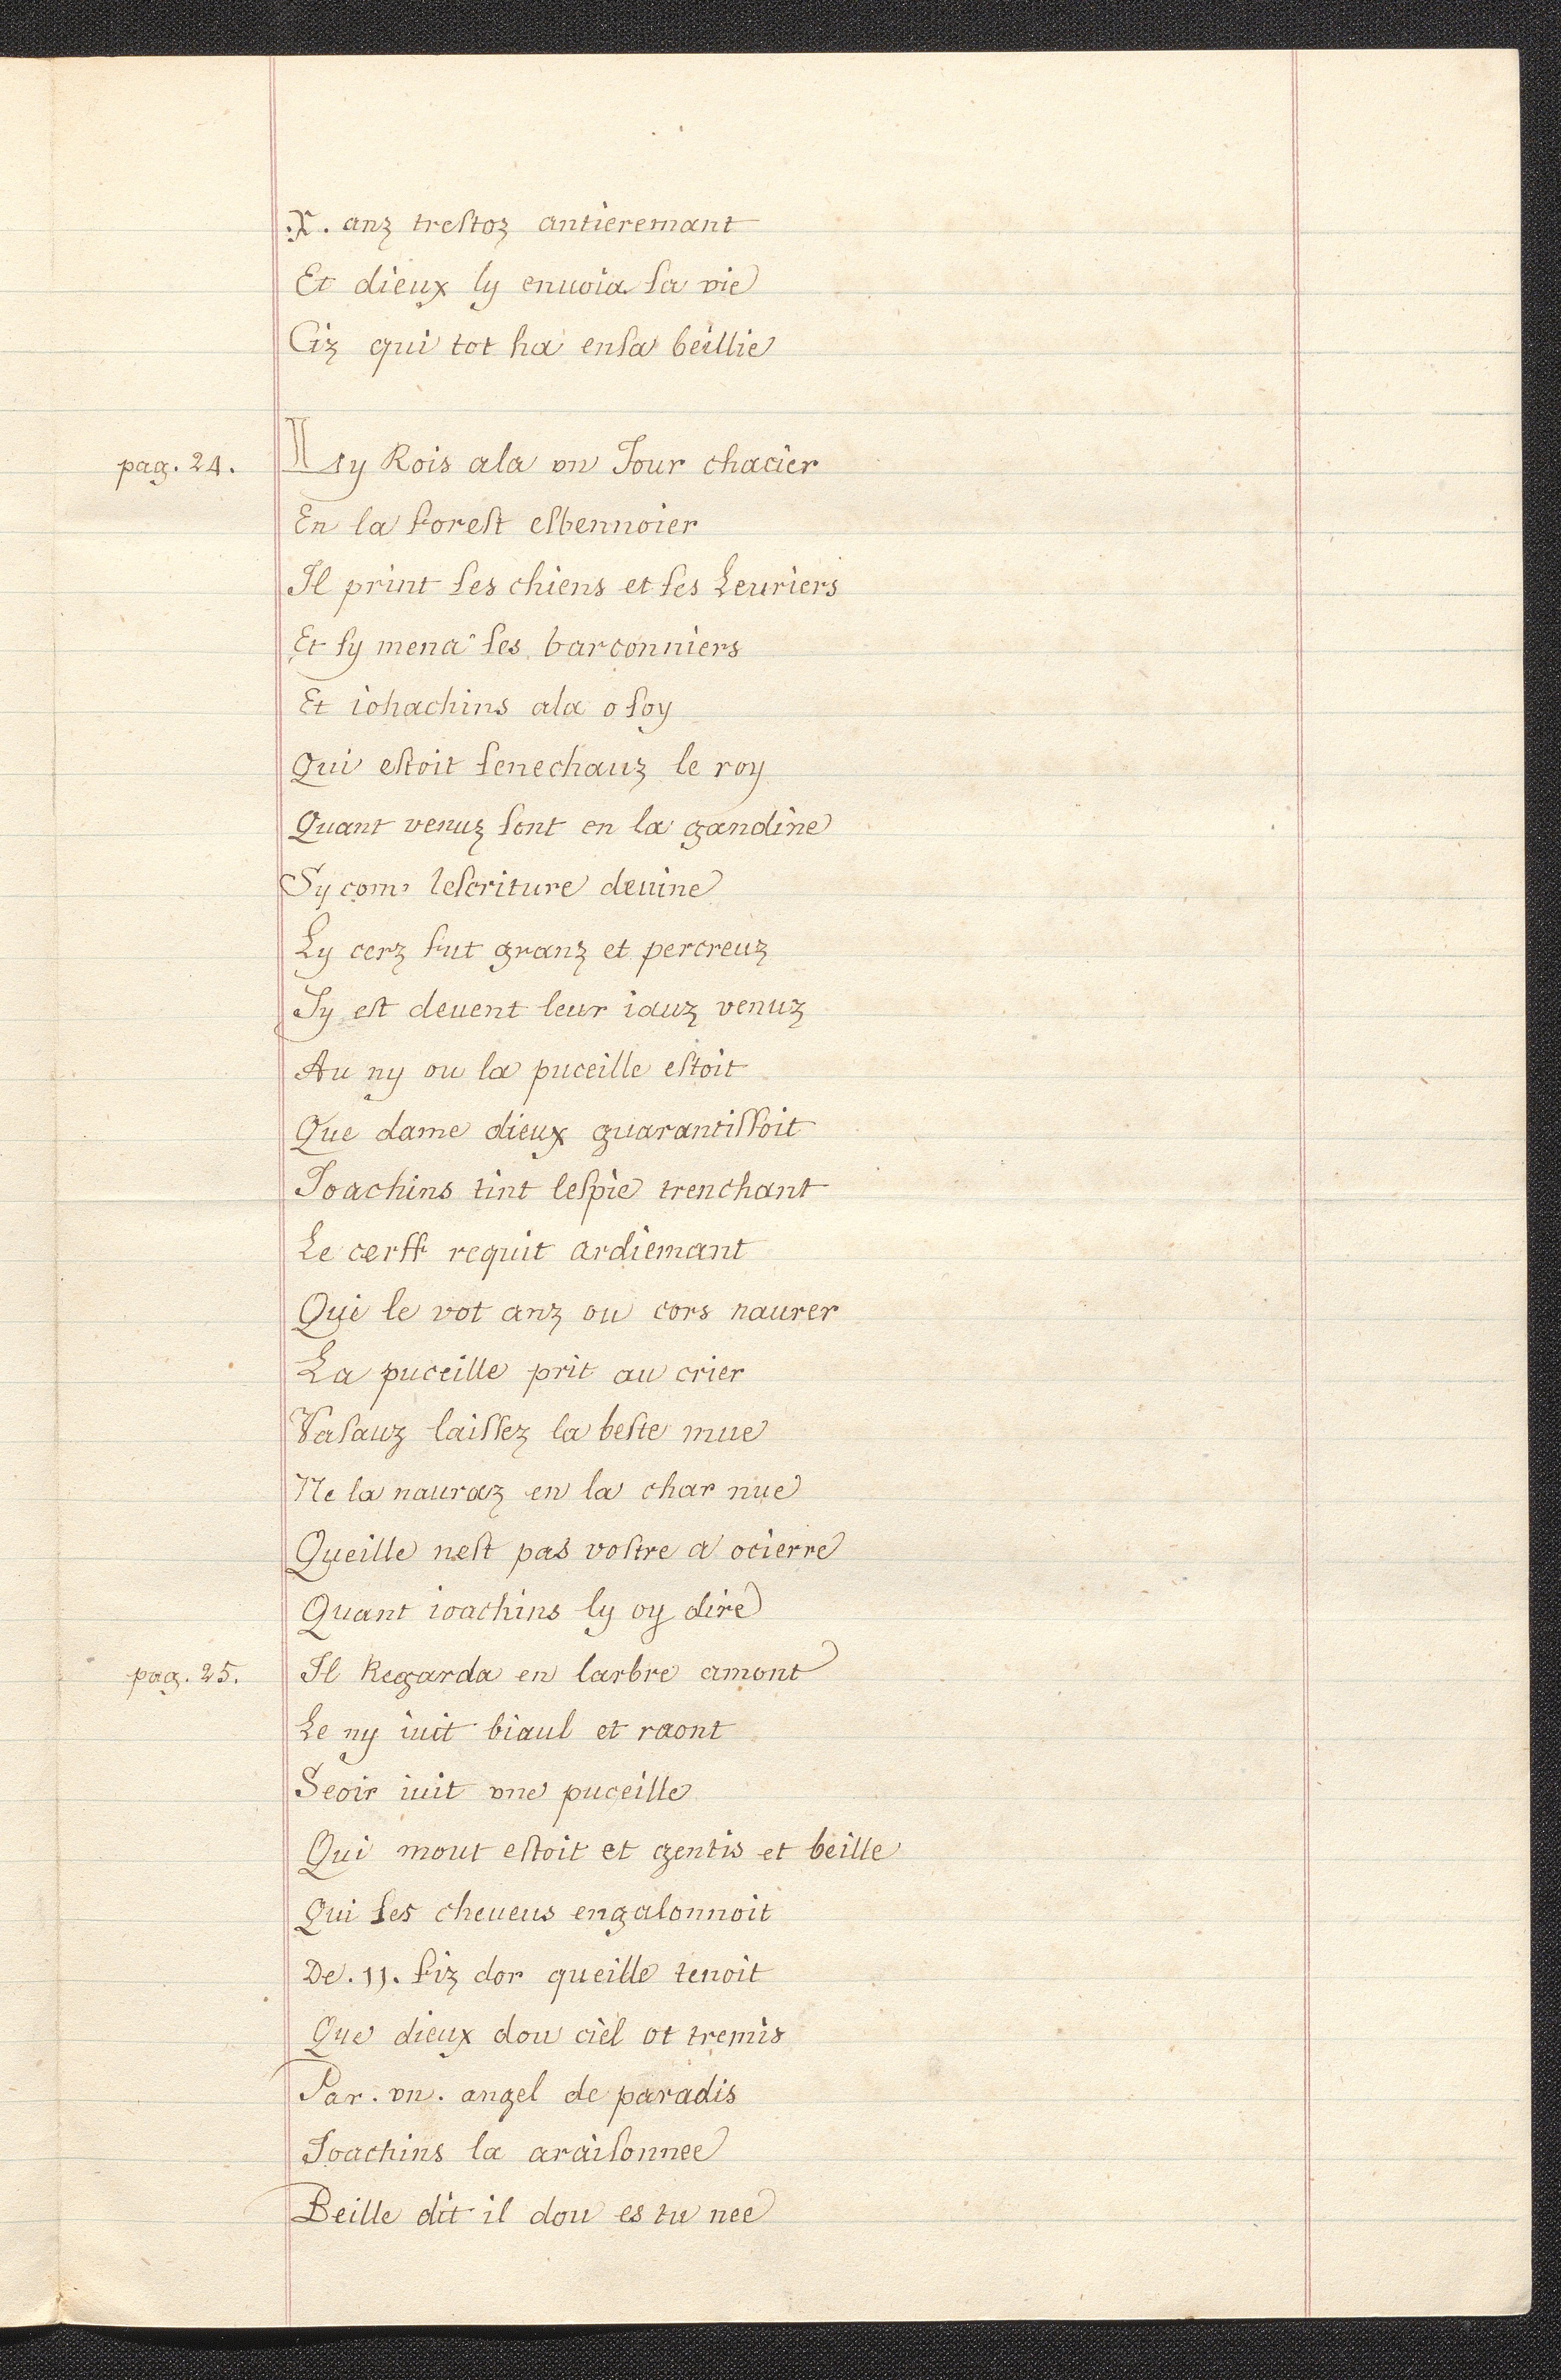 .X. anz trestoz antieremant
Et dieux ly enuoia sa vie
Ciz qui tot ha ensa beillie
pag. 24. Lsy Rois ala vn Jour chacier
En la forest esbennoier
Il print ses chiens et ses Leuriers
Et sy mena ses barconniers
Et iohachins ala o soy
Qui estoit senechauz le roy
Quant venuz sont en la gandine
Sy com' lescriture deuine
Ly cerz fut granz et percreuz
Sy est deuent leur iauz venuz
Au ny ou la puceille estoit
Que dame dieux guarantissoit
Joachins tint lespie trenchant
Le cerff requit ardiemant
Que le vot anz ou cors naurer
La puceille prit au crier
Vasauz laissez la beste mue
Ne la nauraz en la char nue
Queille nest pas vostre a ocierre
Quant ioachins ly oy dire
pag. 25. Il Regarda en larbre amont
Le ny iuit biaul et raont
Seoir iuit vne puceille
Qui mout estoit et gentis et beille
Qui ses cheueus engalonnoit
De .11. fiz dor queille tenoit
Que dieux dou ciel ot tremis
Par . vn . angel de paradis
Joachins la araisonnee
Beille dit il dou es tu nee